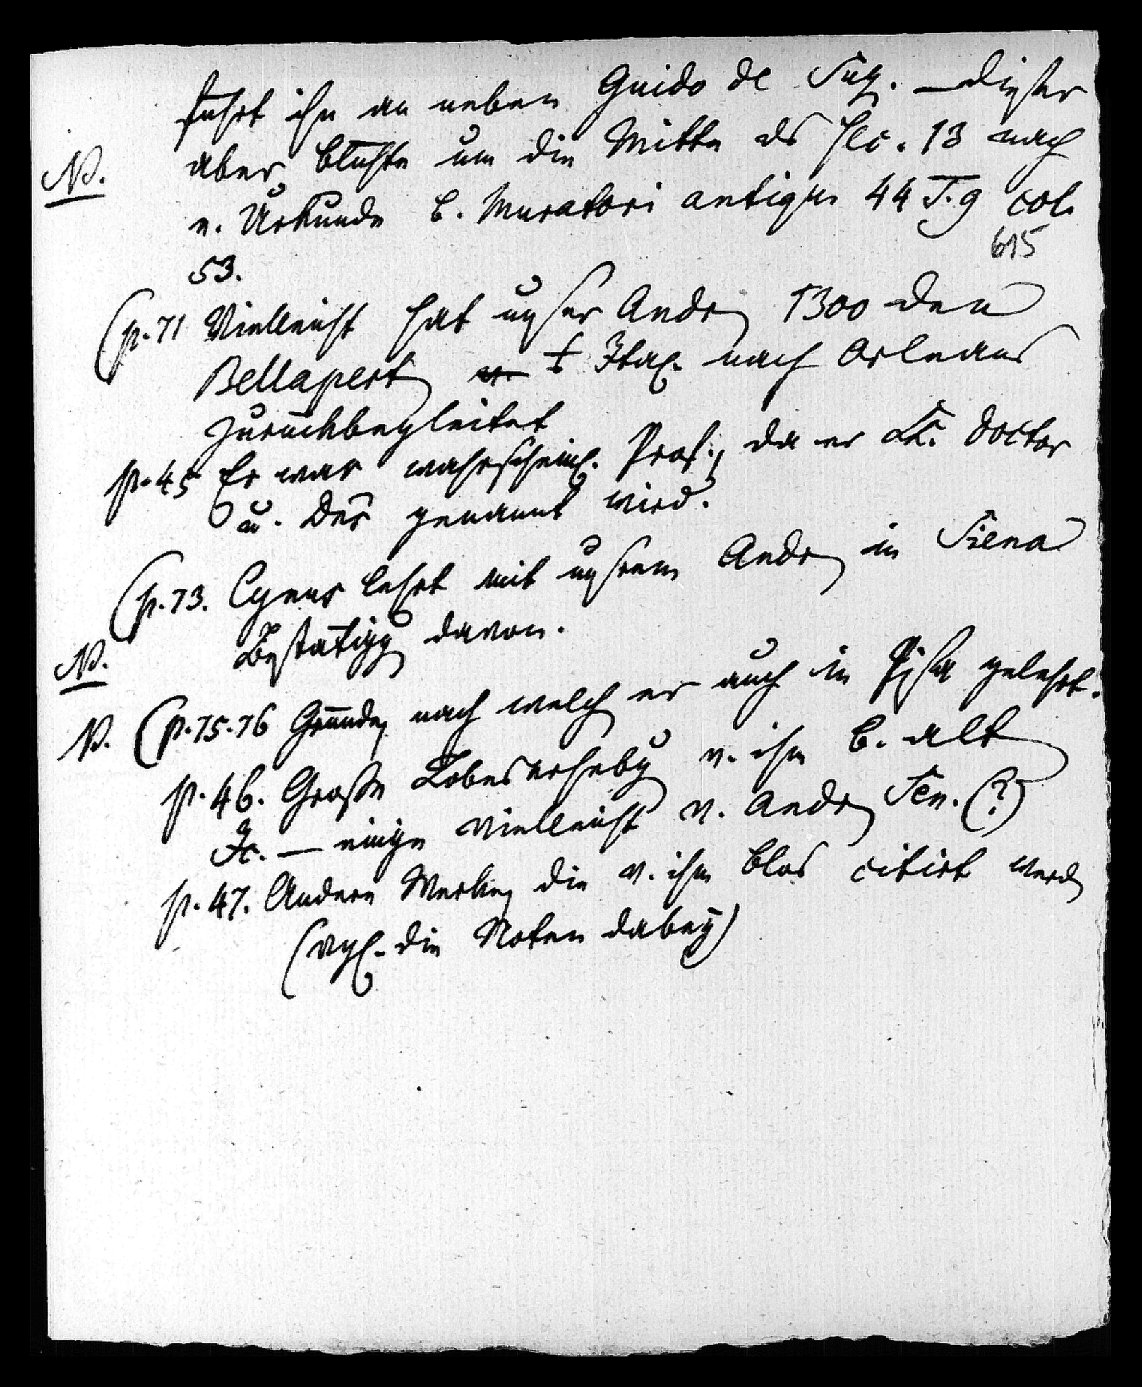 führt ihn an neben Guido de Suz. — dieser
N. aber blühte um die Mitte des sec. 13 nach
e. Urkunde b. Muratori antiqu. 44 T. 9 col.
53. 615
(p. 71 Vielleicht hat unser Andr 1300 den
Bellapert Ital. nach Orleans
zurückbegleitet
p. 45 Er war wahrscheinl. Prof., da er Doctor
u. Dns genannt wird.
(p. 73. Cynus lehrt mit unsrem Andr in Siena
N. Bestätigg davon.
N. (p. 75. 76 Gründe, nach welch er auch in Pisa gelehrt.
p. 46. Große Lobeserhebg v. ihm b. alt
Jc. — einige vielleicht v. Andr Sen. (?)
p. 47. Andere Werke, die v. ihm blos citirt werd
(vgl. die Noten dabey)